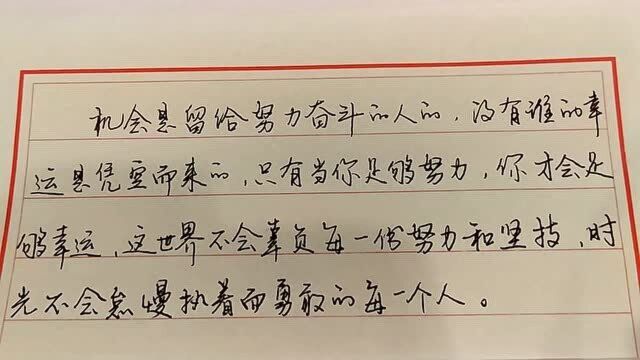 机会是留给努力奋斗的人的，没有谁的幸
运是凭空而来的，只有当你足够努力，你才会足
够幸运，这世界不会辜负每一份努力和坚持，时
光不会怠慢执着而勇敢的每一个人。